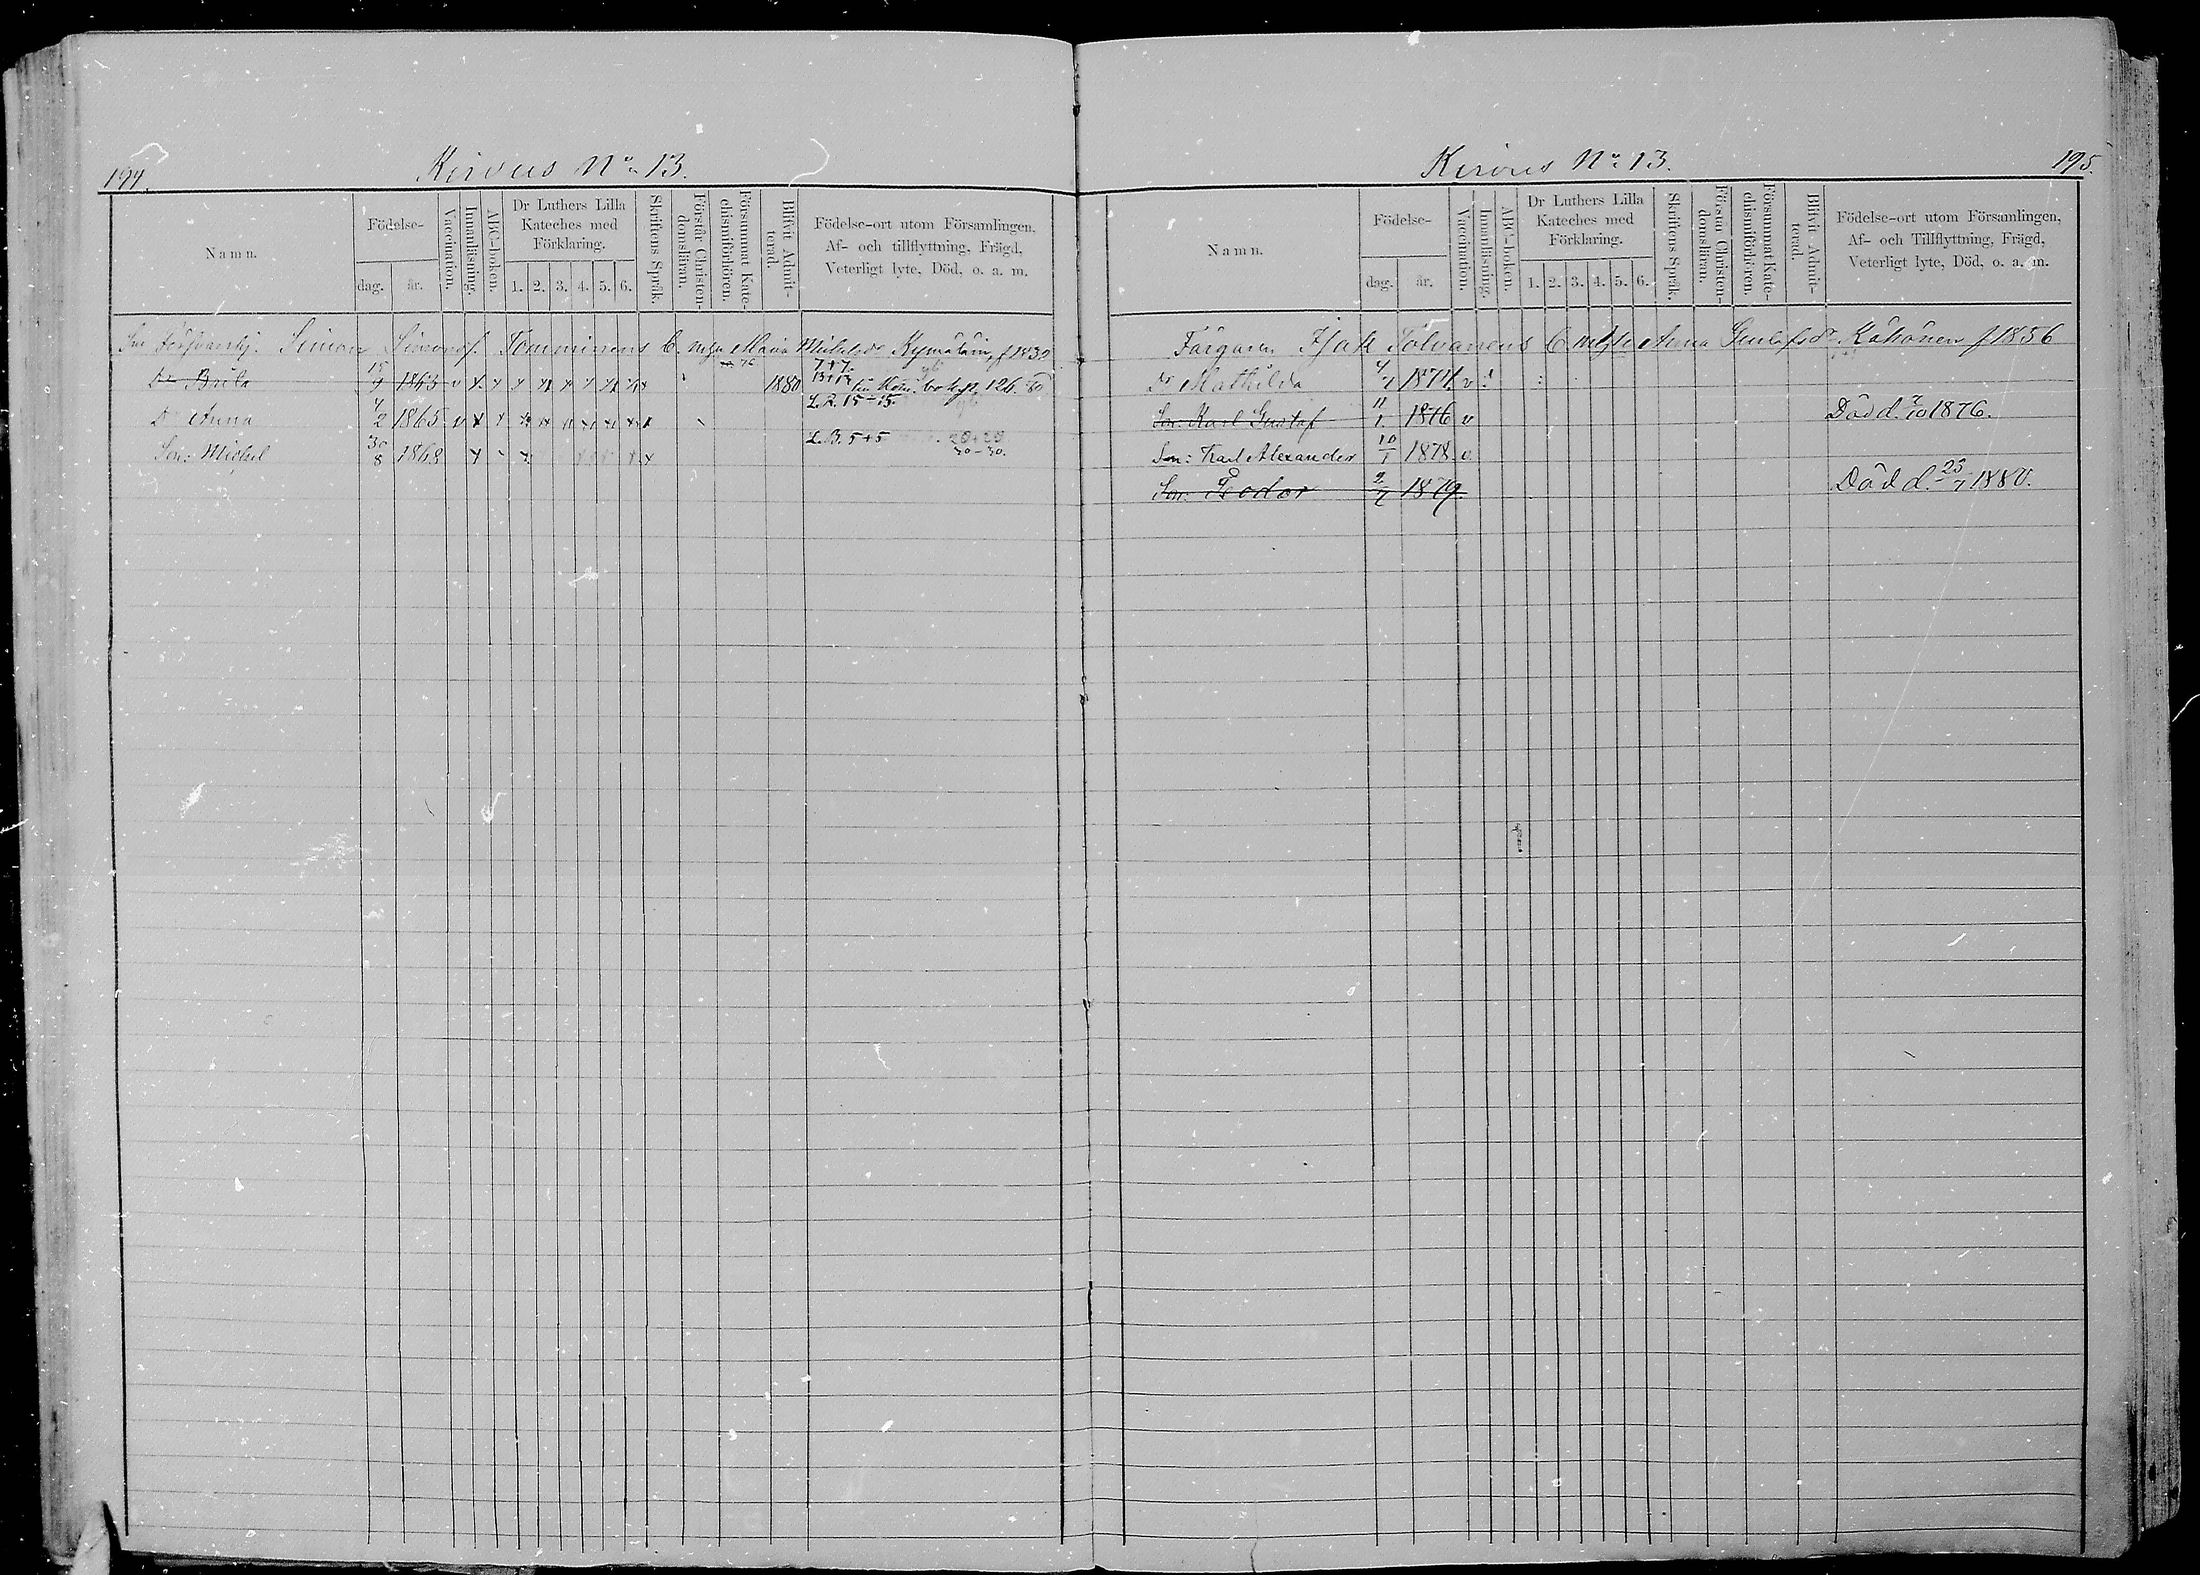 194.
Kirvus No 13.
Namn.
Födelse-
dag.
år.
Vaccination.
Innanläsning.
ABC-boken.
Dr Luthers Lilla
Kateches med
Förklaring.
1. 2. 3. 4. 5. 6.
Skriftens Språk.
Förstår Christen-
domsläran.
Försummat Kate-
chismiförhören.
Blifvit Admit-
terad.
Födelse-ort utom Församlingen,
Af- och tillflyttning, Frägd,
Veterligt lyte, Död, o. a. m.
Simon Simonss. Tomminens B. m hu Maria Michelsdr 
Dr Brita 15/4 1863 v 1880 126.
Dr Anna 4/2 1865 v L. B. 15-15.
Son: Michel 30/8 1868 L. B. 5+5 20+20
30-30.
Kirvus No 13.
195.
Namn.
Födelse-
dag.
år.
Vaccination.
Innanläsning.
ABC-boken.
Dr Luthers Lilla
Kateches med
Förklaring.
1. 2. 3. 4. 5. 6.
Skriftens Språk.
Förstår Christen-
domsläran.
Försummat Kate-
chismiförhören.
Blifvit Admit-
terad.
Födelse-ort utom Församlingen,
Af- och Tillflyttning, Frägd,
Veterligt lyte, Död, o. a. m.
Färgaren Isak Tolvanens B. m Anna Gustafsdr Kähönen f 1856
Dr Mathilda 4/7 1874 v
Son: Karl Gustaf 11/1 1876 v Död d. 7/10 1876.
Son: Karl Alexander 10/1 1878 v
Son: Feodor 2/7 1879. Död d. 23/7 1880.